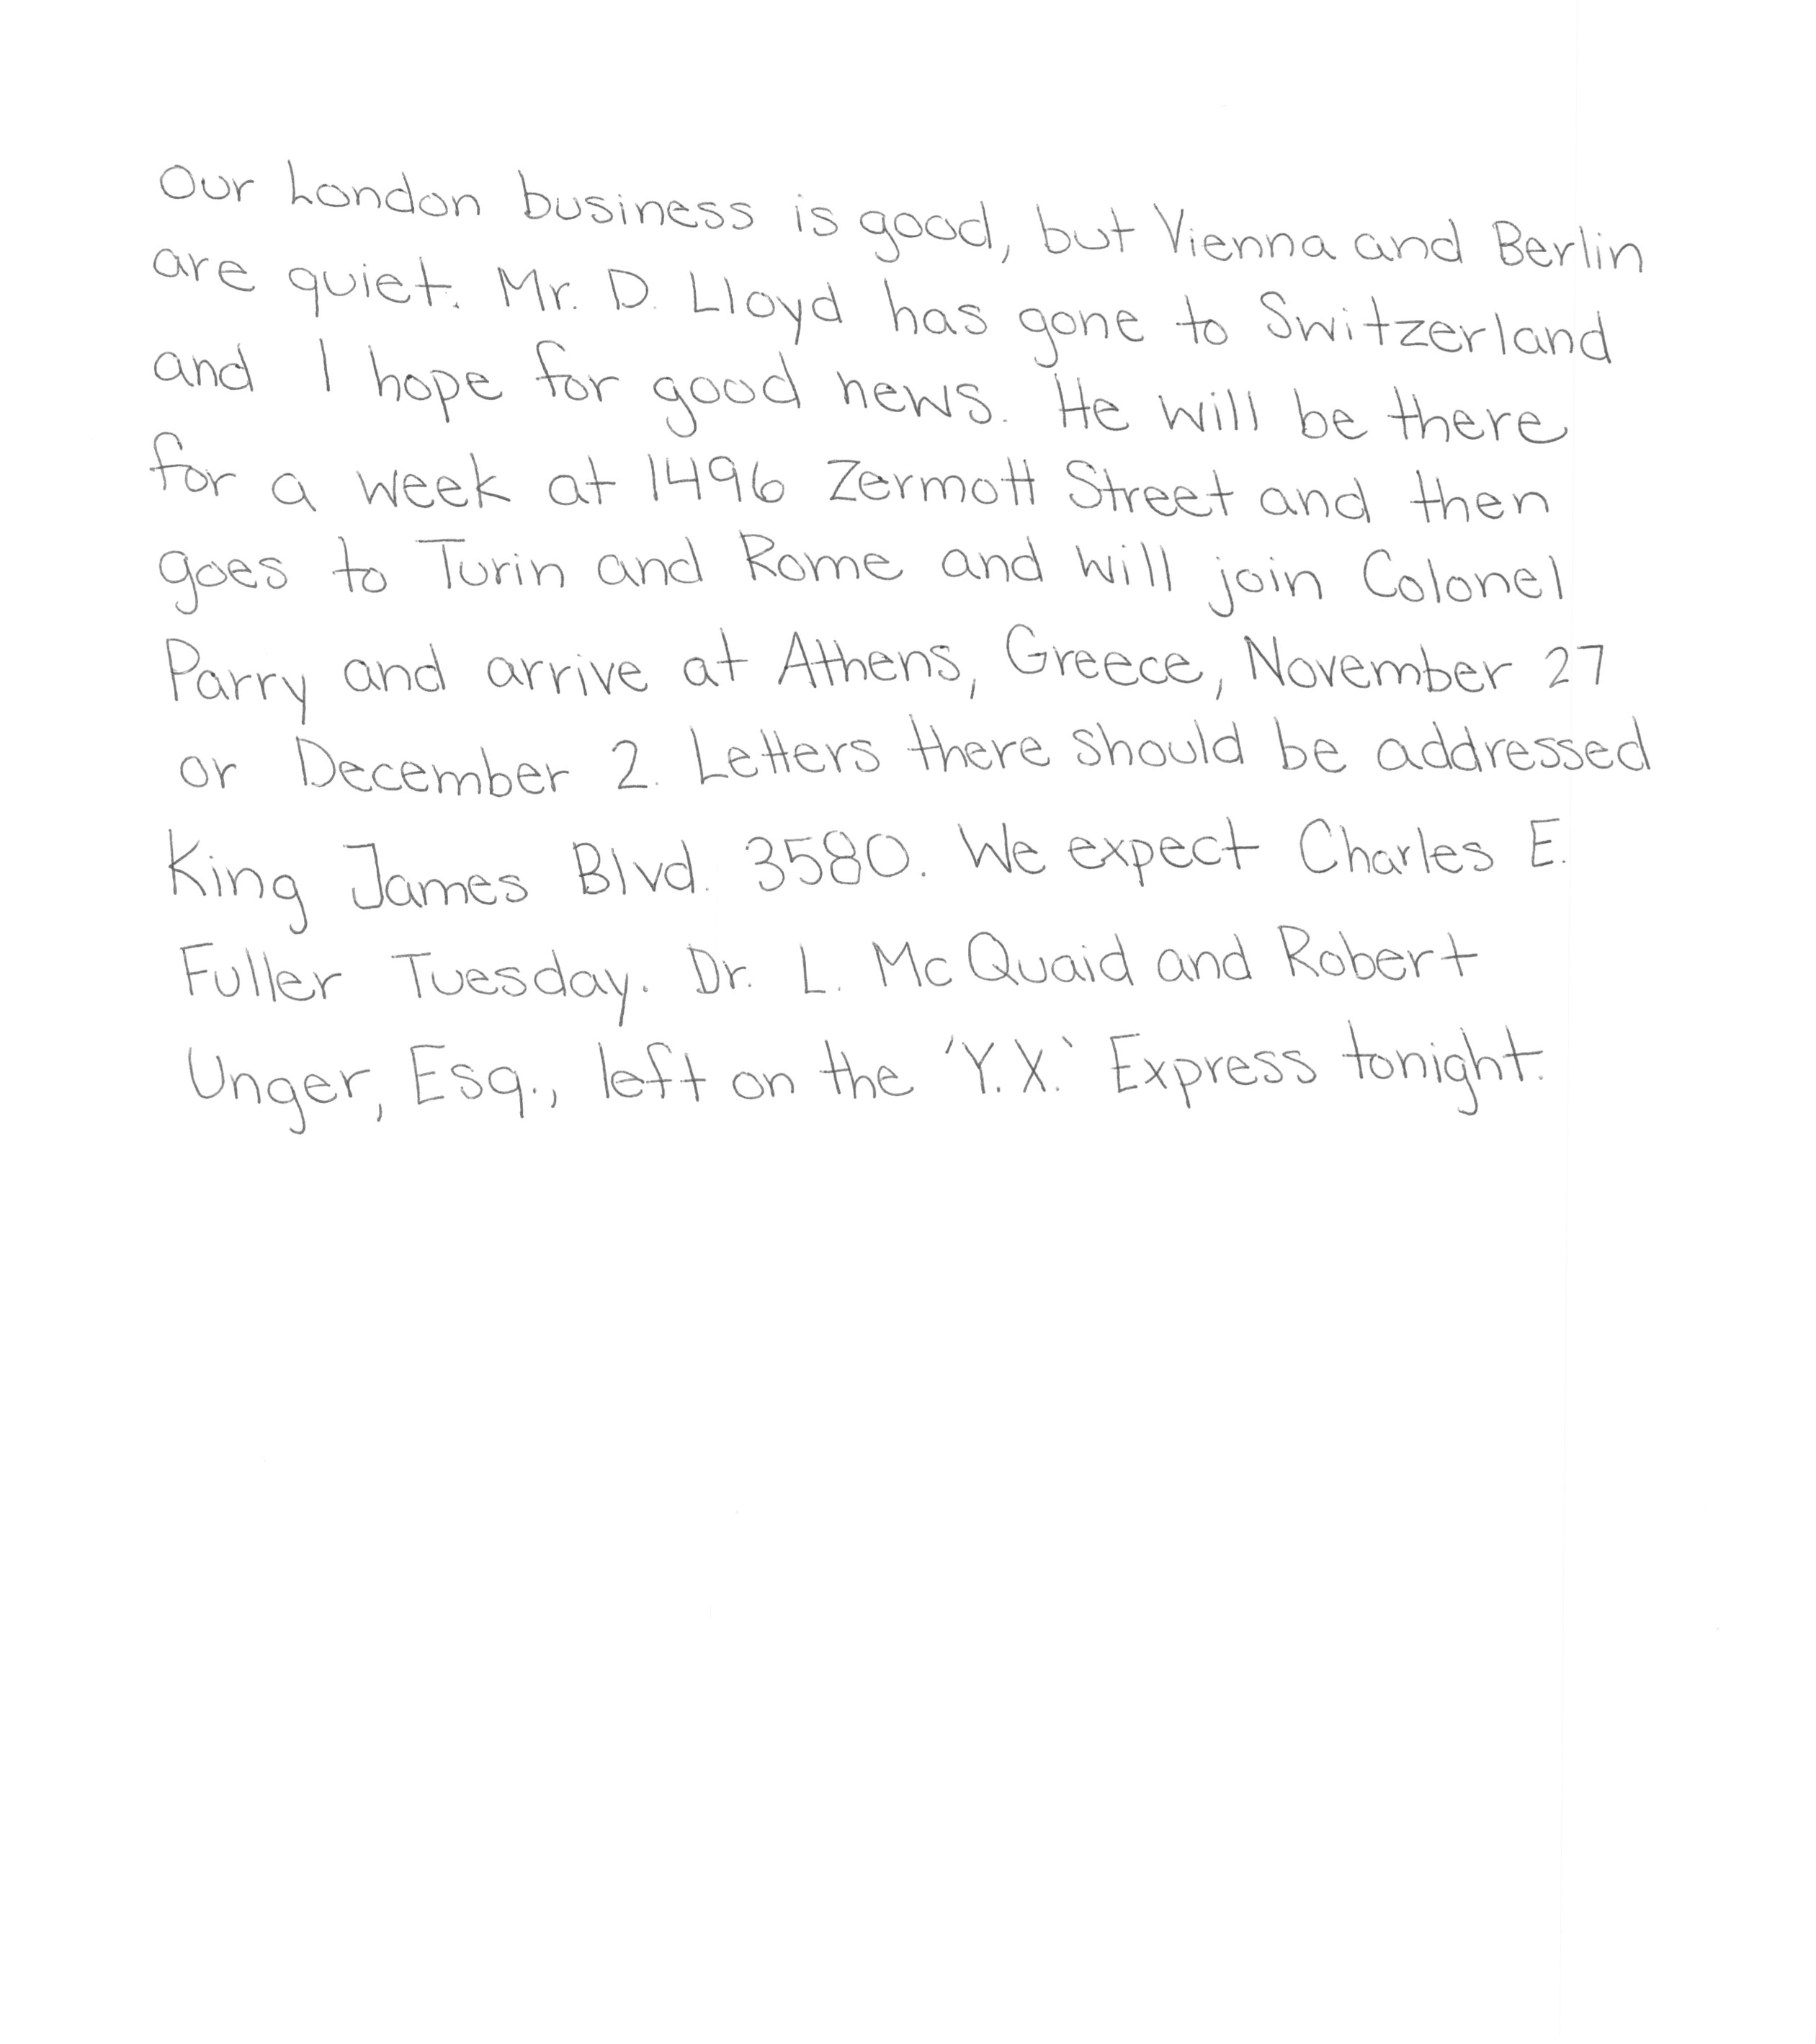 Our London business is good, but Vienna and Berlin
are quiet. Mr. D. Lloyd has gone to Switzerland
and I hope for good news. He will be there
for a week at 1496 Zermott Street and then
goes to Turin and Rome and will join Colonel
Parry and arrive at Athens, Greece, November 27
or December 2. Letters there should be addressed
King James Blvd. 3580. We expect Charles E.
Fuller Tuesday. Dr. L. McQuaid and Robert
Unger, Esq., left on the 'Y.X.' Express tonight.